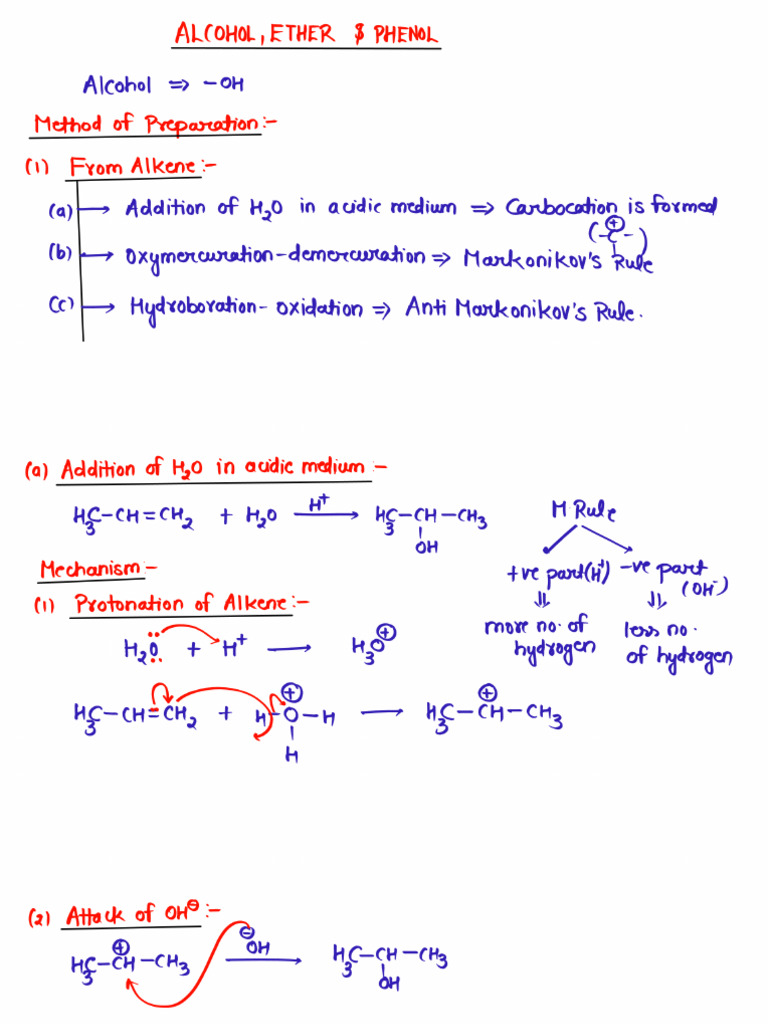 ALCOHOL, ETHER & PHENOL
Alcohol ⇒ -OH
Method of Preparation:-
(1) From Alkene:-
(a) → Addition of H₂O in acidic medium ⇒ Carbocation is formed
(-C⊕-)
(b) → Oxymercuration-demercuration ⇒ Markonikov's Rule
(c) → Hydroboration-oxidation ⇒ Anti Markonikov's Rule.
(a) Addition of H₂O in acidic medium:-
H₃C-CH=CH₂ + H₂O —H⁺→ H₃C-CH-CH₃
OH
M Rule
+ve part(H⁺) -ve part (OH⁻)
⇓ ⇓
more no. of hydrogen
less no. of hydrogen
Mechanism:-
(1) Protonation of Alkene:-
H₂O + H⁺ → H₃O⊕
H₃C-CH=CH₂ + H-O⊕-H → H₃C-CH⊕-CH₃
H
(2) Attack of OH⊖:-
H₃C-CH⊕-CH₃ ⊖OH → H₃C-CH-CH₃
OH